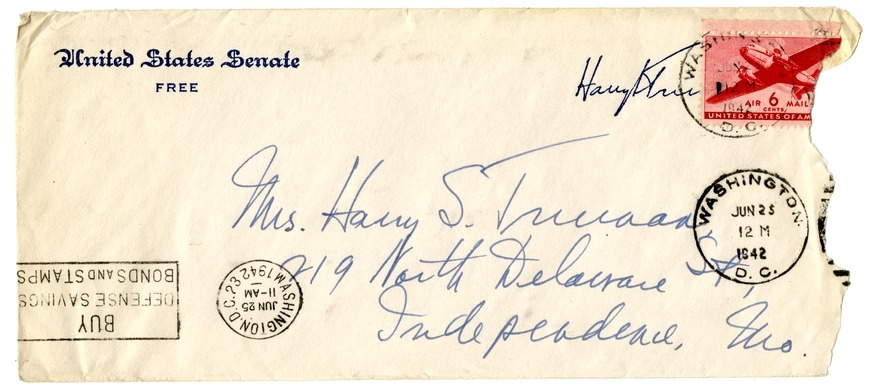 United States Senate
FREE
Harry S Tru
WASHINGTON
JUN 25
1942
D. C.
AIR 6 MAIL
CENTS
UNITED STATES OF AM
Mrs. Harry S. Truman
219 North Delaware St.,
Independence, Mo.
WASHINGTON
JUN 25
12 M
1942
D. C.
WASHINGTON, D.C. 23
JUN 25
11-AM
1942
BUY
DEFENSE SAVINGS
BONDS AND STAMPS